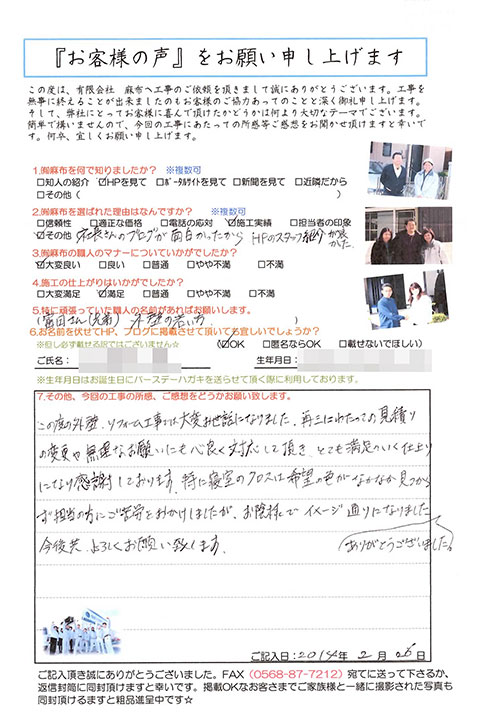 『お客様の声』をお願い申し上げます
この度は、有限会社 麻布へ工事のご依頼を頂きまして誠にありがとうございます。工事を
無事に終えることが出来ましたのもお客様のご協力あってのことと深く御礼申し上げます。
そして、弊社にとってお客様に喜んで頂けたかどうかは何より大切なテーマでございます。
簡単で構いませんので、今回の工事にあたっての所感等ご感想をお聞かせ頂けますと幸いで
す。何卒、宜しくお願い申し上げます。
1.㈲麻布を何で知りましたか？ ※複数可
□知人の紹介 ☑HPを見て □ﾎﾟｰﾀﾙｻｲﾄを見て □新聞を見て □近隣だから
□その他（ ）
2.㈲麻布を選ばれた理由はなんですか？ ※複数可
□信頼性 □適正な価格 □電話の応対 ☑施工実績 □担当者の印象
☑その他 社長さんのブログが面白かったから HPのスタッフ紹介が良かった
3.㈲麻布の職人のマナーについていかがでしたか？
☑大変良い □良い □普通 □やや不満 □不満
4.施工の仕上がりはいかがでしたか？
□大変満足 ☑満足 □普通 □やや不満 □不満
5.特に頑張っていた職人の名前があればお願いします。
（富田さん(兄弟) 外壁の若い方 ）
6.お名前を伏せてHP、ブログに掲載させて頂いても宜しいでしょうか？
※但し必ず載せる訳ではございません☆ ☑OK □匿名ならOK □載せないでほしい）
ご氏名： 生年月日：
※生年月日はお誕生日にバースデーハガキを送らせて頂く際に利用しております。
7.その他、今回の工事の所感、ご感想をどうかお願い致します。
この度の外壁、リフォーム工事では大変お世話になりました。再三にわたっての見積り
の変更や無理なお願いにも心良く対応して頂き、とても満足のいく仕上り
になり感謝しております。特に寝室のクロスは希望の色がなかなか見つから
ず担当の方にご苦労をおかけしましたが、お陰様でイメージ通りになりました
今後共、よろしくお願い致します。
ありがとうございました。
ご記入日：2014年 2月 26日
ご記入頂き誠にありがとうございました。FAX（0568-87-7212）宛てに送って下さるか、
返信封筒に同封頂けますと幸いです。掲載OKなお客さまでご家族様と一緒に撮影された写真も
同封頂けるますと粗品進呈中です☆